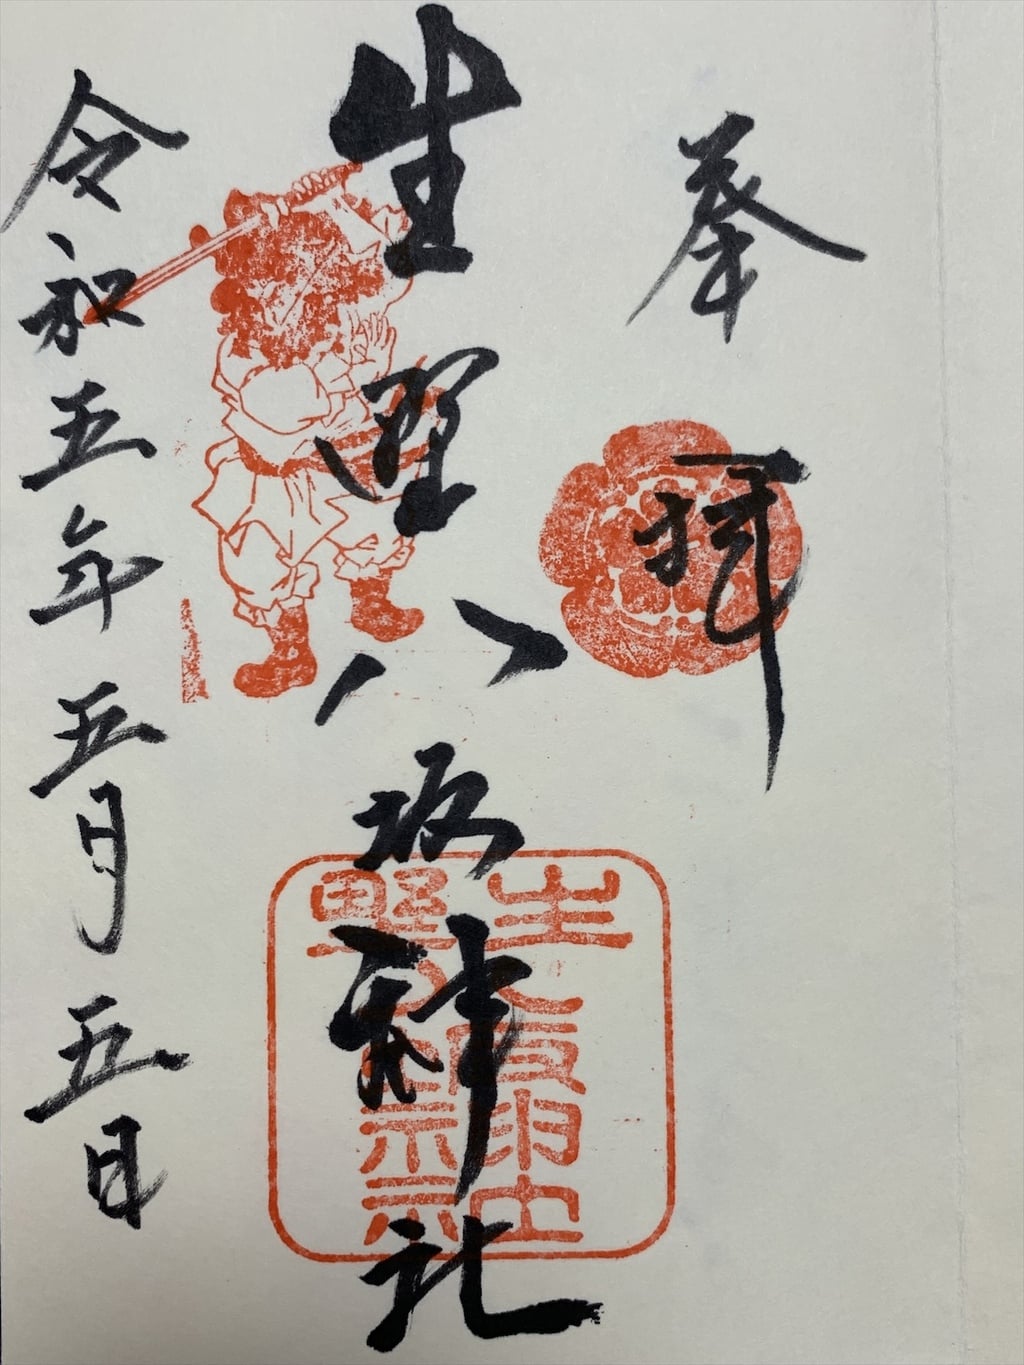 奉拝
生野八坂神社
生野八坂神社
令和五年五月五日